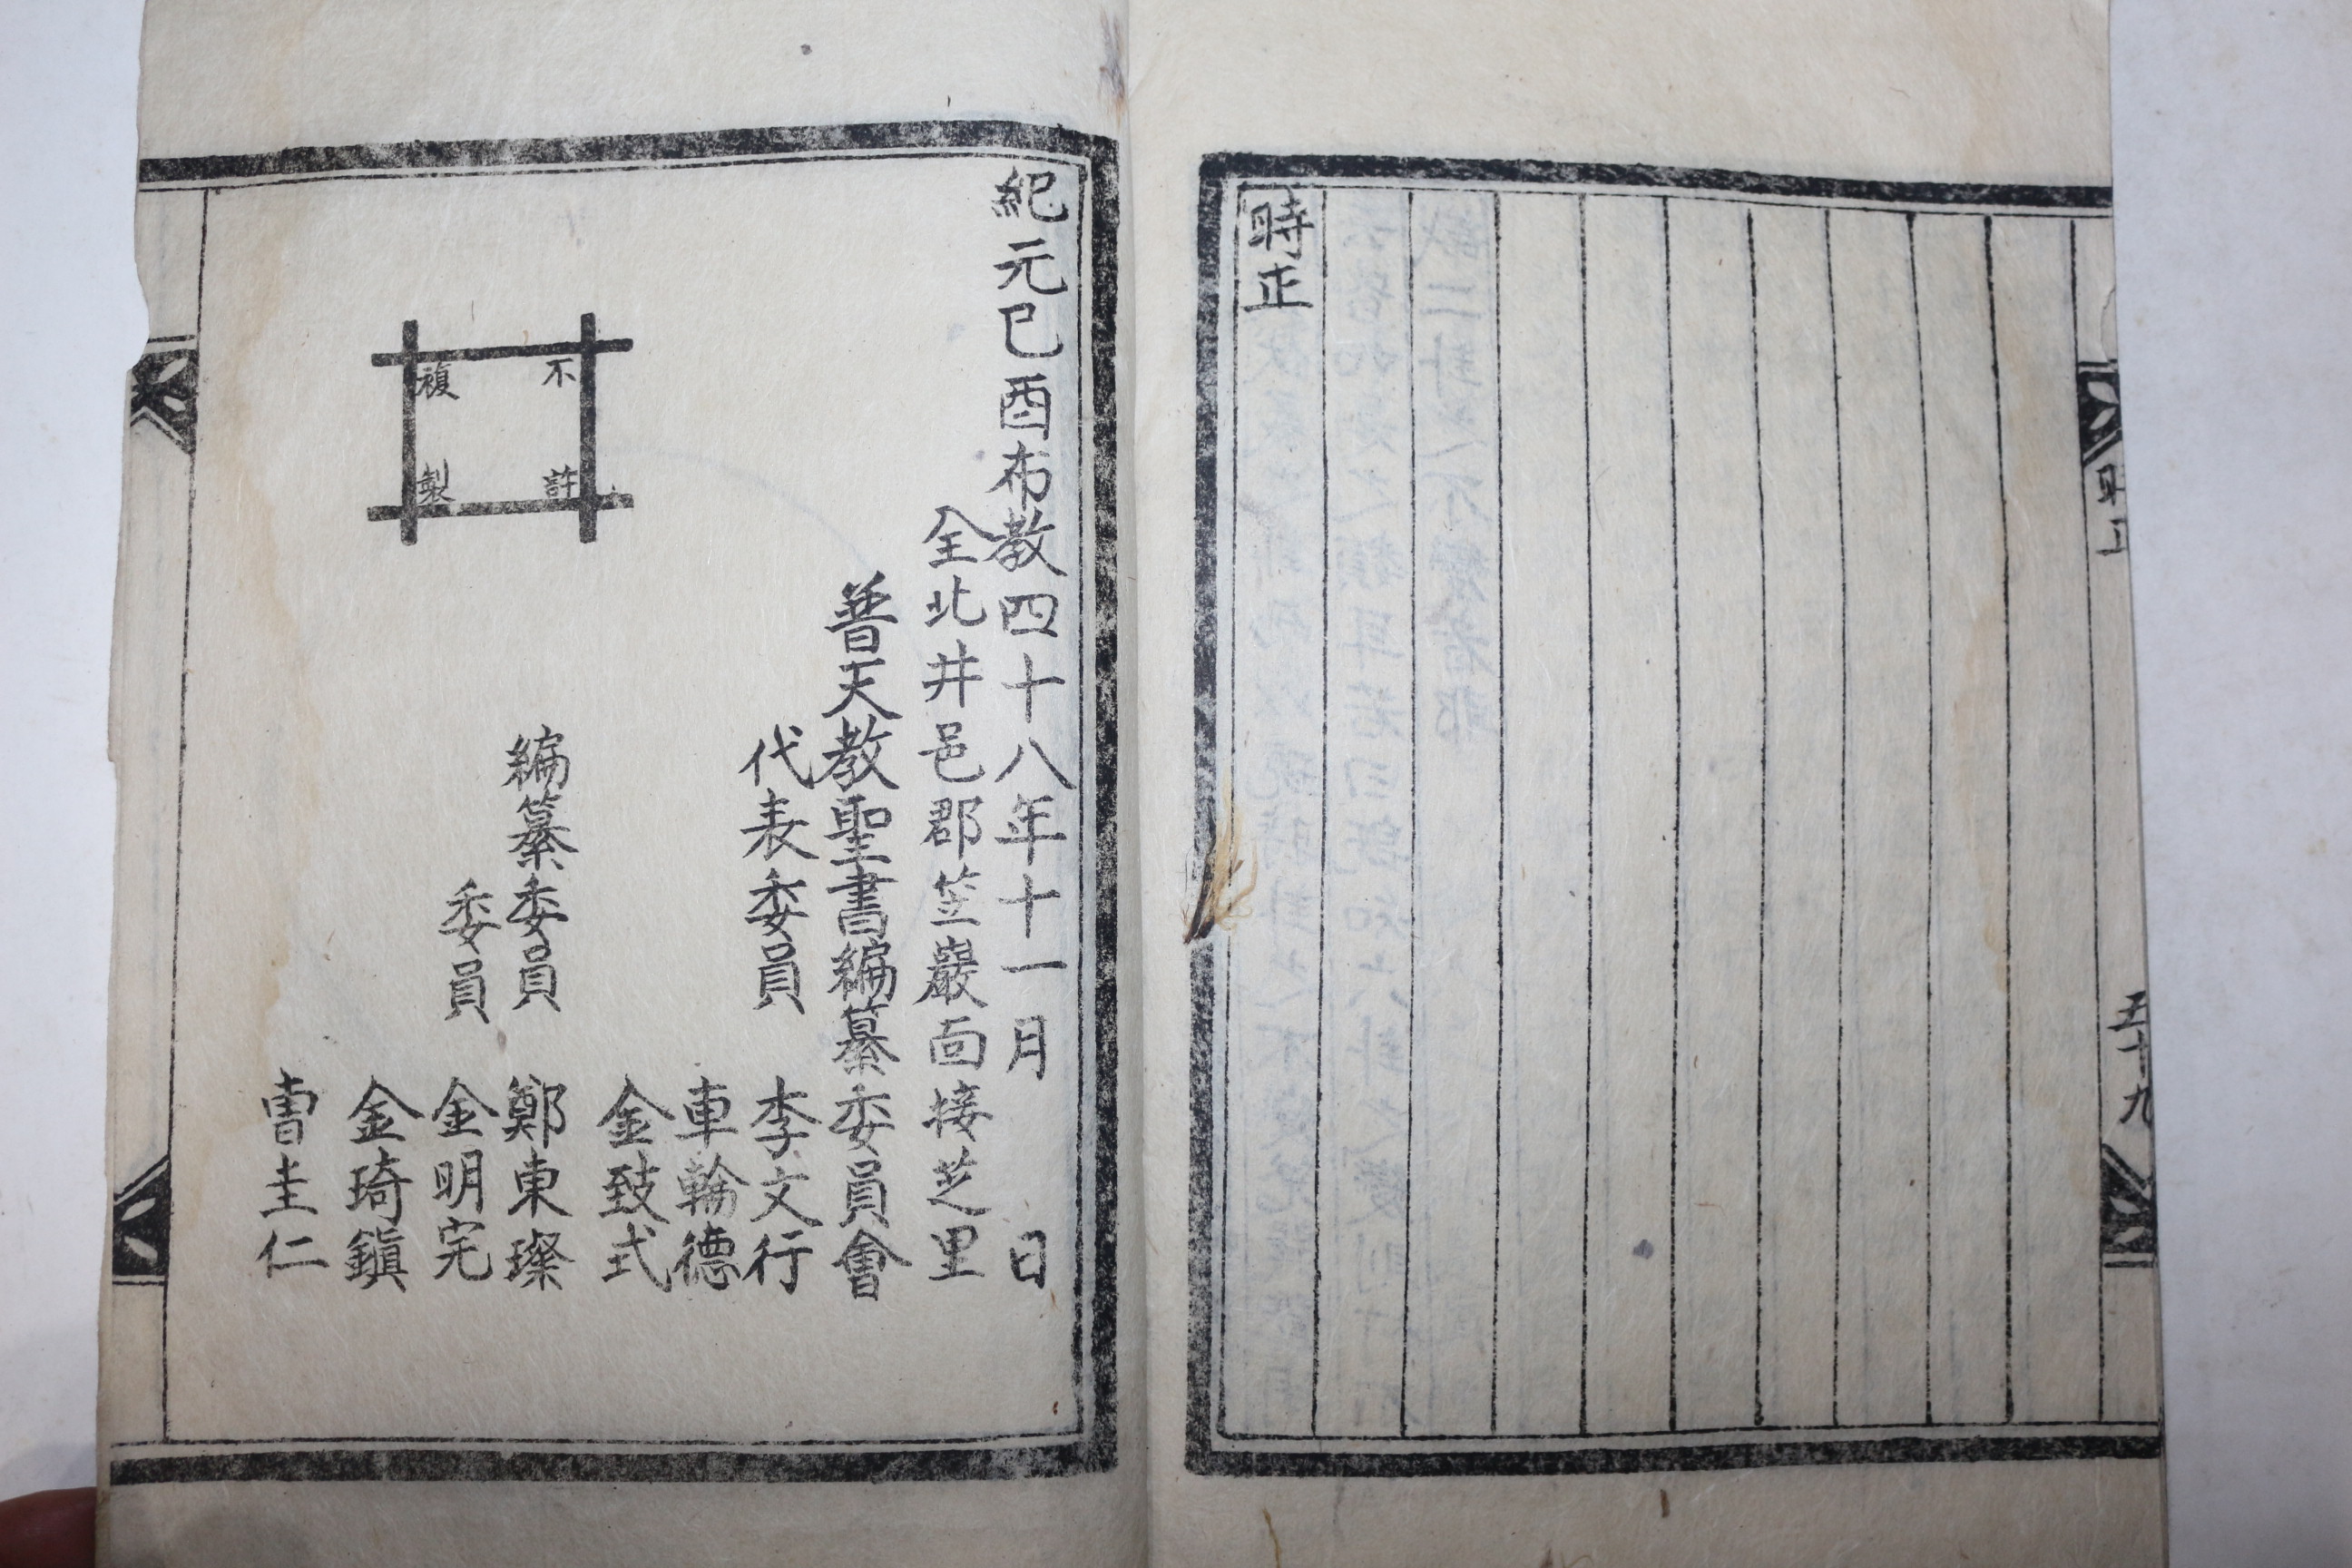 時正
五十九
紀元己酉布教四十八年十一月 日
全北井邑郡笠巖面接芝里
普天教聖書編纂委員會
代表委員 李文行
車輪德
金致式
編纂委員 鄭東璨
委員 金明完
金琦鎭
曹圭仁
不許
複製